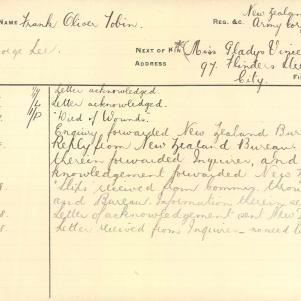 NAME Frank Oliver Tobin. REG. &C. New Zealand
Army Cor
George Lee. NEXT OF KIN Miss Gladys
ADDRESS 97. Flinders
City.
Letter acknowledged.
Letter acknowledged.
"Died of Wounds.
Enquiry forwarded New Zealand Bur
Reply from New Zealand Bureau.
therein forwarded Inquirer, and
knowledgement forwarded New
Slip received from Commrs. throu
and Bureau. Information therein se
Letter of acknowledgement sent New Z
Letter received from Inquirer